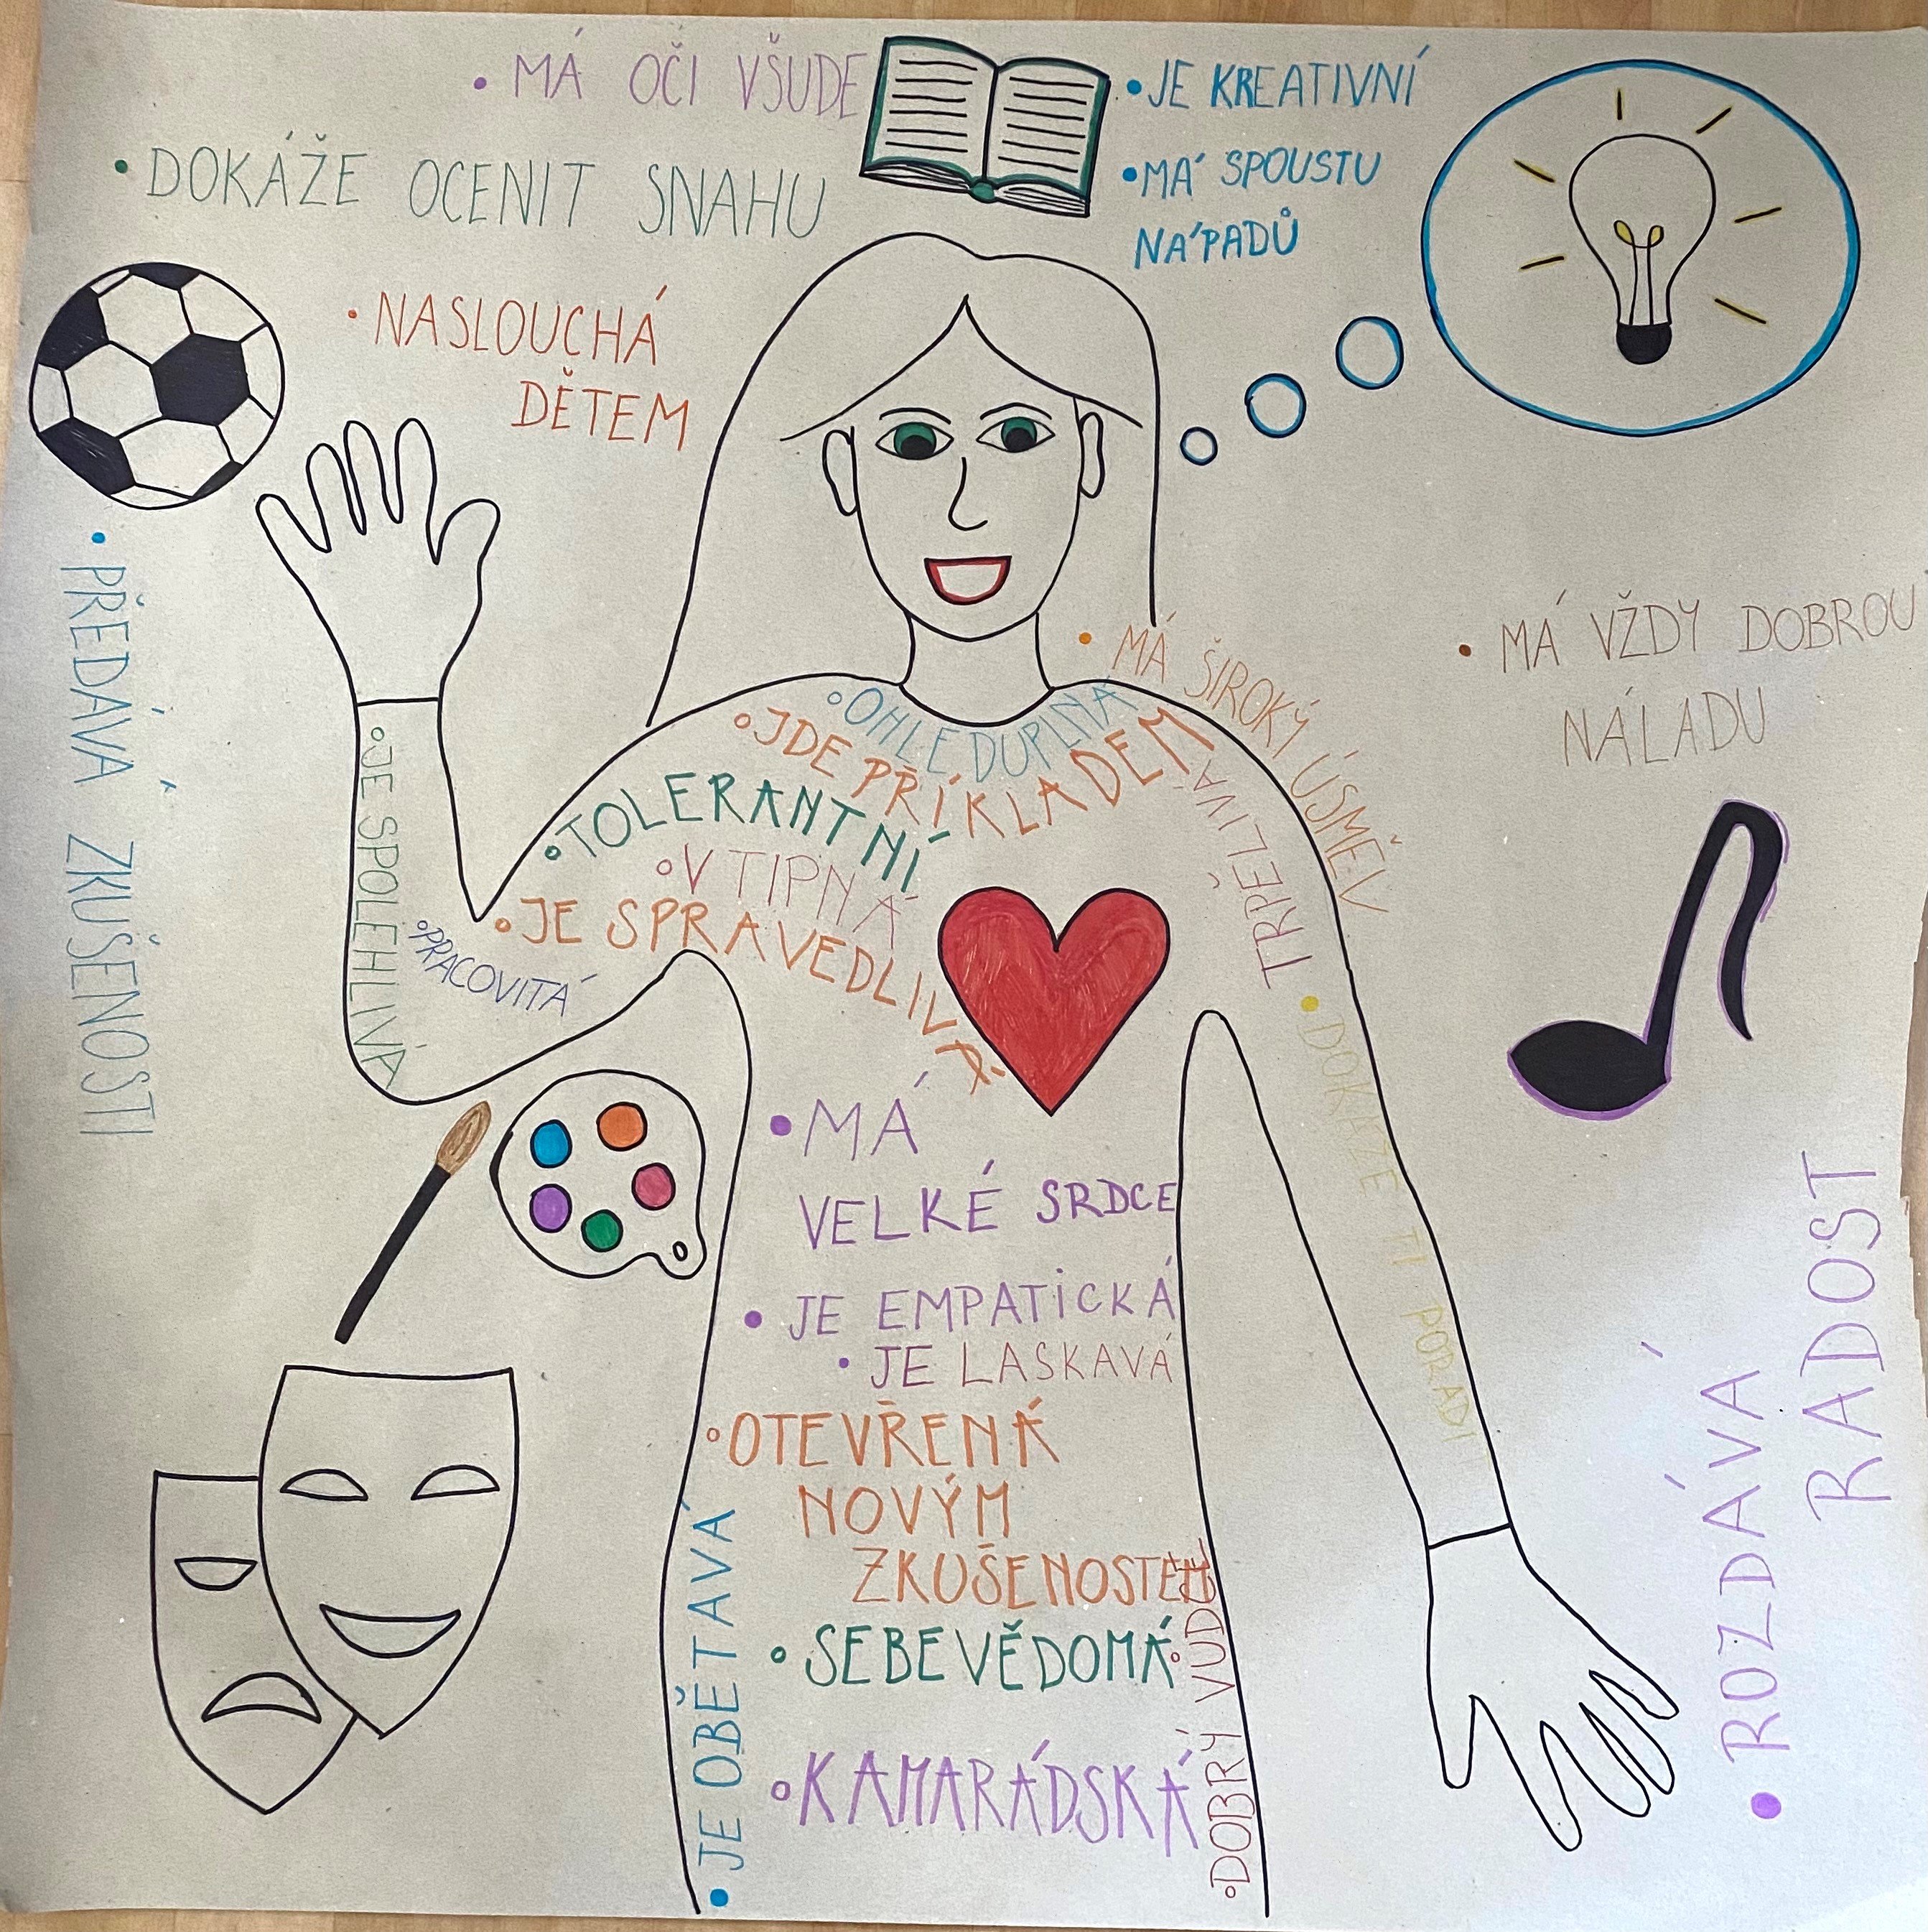 • MÁ OČI VŠUDE
• JE KREATIVNÍ
• DOKÁŽE OCENIT SNAHU
• MÁ SPOUSTU
NÁPADŮ
• NASLOUCHÁ
DĚTEM
• PŘEDÁVÁ ZKUŠENOSTI
• MÁ ŠIROKÝ ÚSMĚV
• MÁ VŽDY DOBROU
NÁLADU
• OHLEDUPLNÁ
• JDE PŘÍKLADEM
• TOLERANTNÍ
• VTIPNÁ
• JE SPRAVEDLIVÁ
TRPĚLIVÁ
• JE SPOLEHLIVÁ
• PRACOVITÁ
• DOKÁŽE TI PORADIT
• MÁ
VELKÉ SRDCE
• JE EMPATICKÁ
• JE LASKAVÁ
• OTEVŘENÁ
NOVÝM
ZKUŠENOSTEM
• SEBEVĚDOMÁ
• KAMARÁDSKÁ
• JE OBĚTAVÁ
• DOBRÝ VŮDCE
• ROZDÁVÁ
RADOST